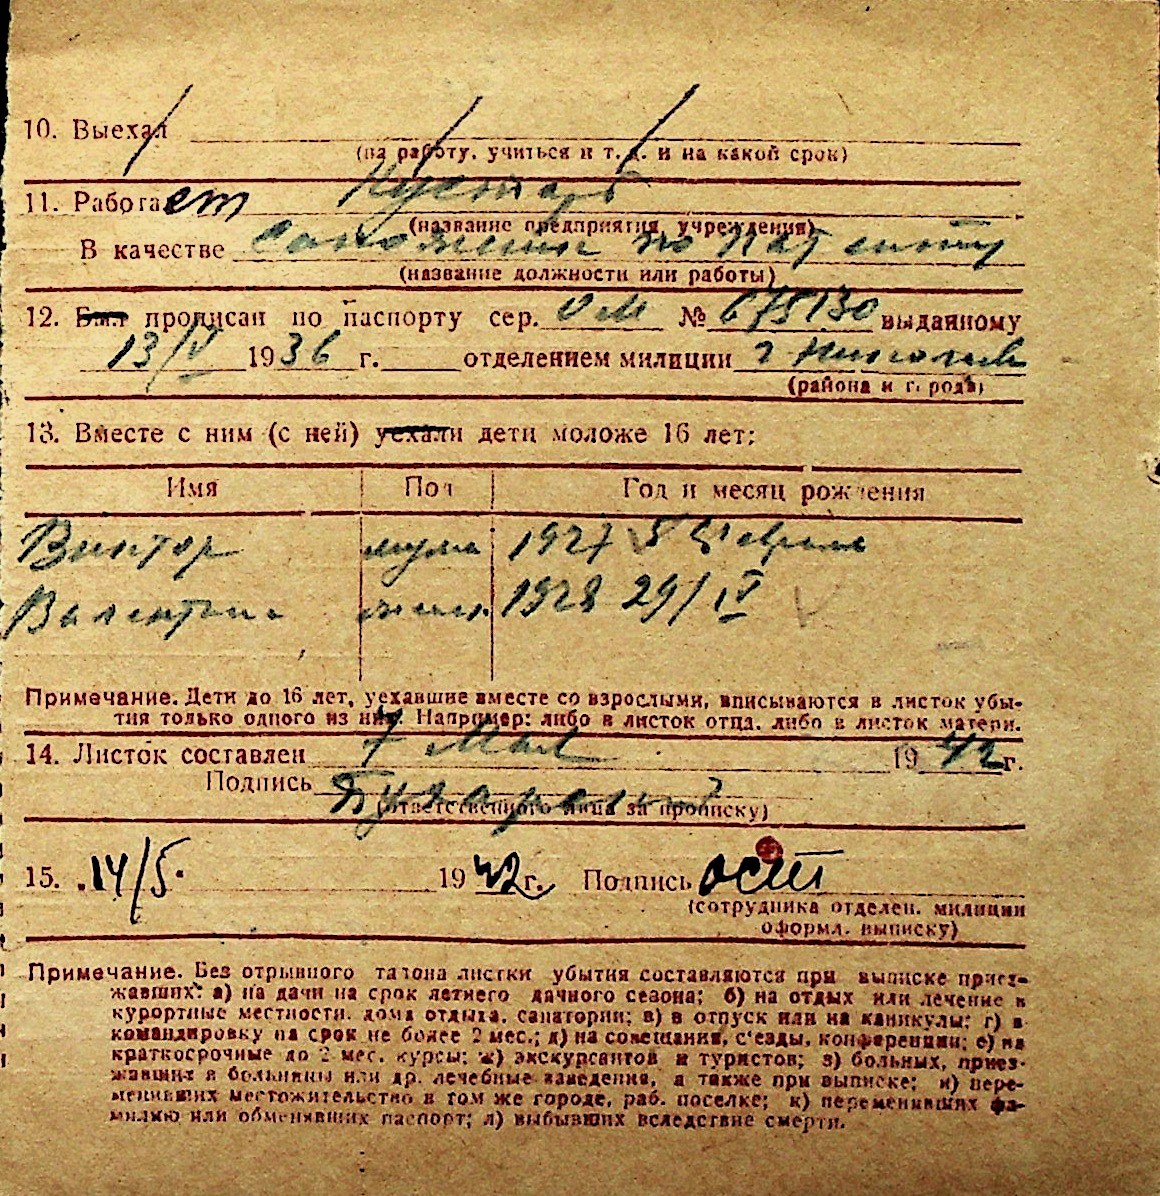 10. Выехал
(на работу, учиться и т. д. и на какой срок)
11. Работает Кустарь
(название предприятия, учреждения)
В качестве сапожника по патенту
(название должности или работы)
12. Был прописан по паспорту сер. ОМ № 675130 выданному
13/V 1936 г. отделением милиции г Николаев
(района и города)
13. Вместе с ним (с ней) уехали дети моложе 16 лет:
Имя Пол Год и месяц рождения
Виктор муж 1927 5 февраля
Валентина жен. 1928 29/IV
Примечание. Дети до 16 лет, уехавшие вместе со взрослыми, вписываются в листок убы-
тия только одного из них. Например: либо в листок отца, либо в листок матери.
14. Листок составлен 7 Мая 1942 г.
Подпись
(ответственного лица за прописку)
15. 14/5. 1942 г. Подпись
(сотрудника отделен. милиции
оформл. выписку)
Примечание. Без отрывного талона листки убытия составляются при выписке приез-
жавших: а) на дачи на срок летнего дачного сезона; б) на отдых или лечение в
курортные местности, дома отдыха, санатории; в) в отпуск или на каникулы; г) в
командировку на срок не более 2 мес.; д) на совещания, с'езды, конференции; е) на
краткосрочные до 2 мес. курсы; ж) экскурсантов и туристов; з) больных, приез-
жавших в больницы или др. лечебные заведения, а также при выписке; и) пере-
менивших местожительство в том же городе, раб. поселке; к) переменивших фа-
милию или обменявших паспорт; л) выбывших вследствие смерти.